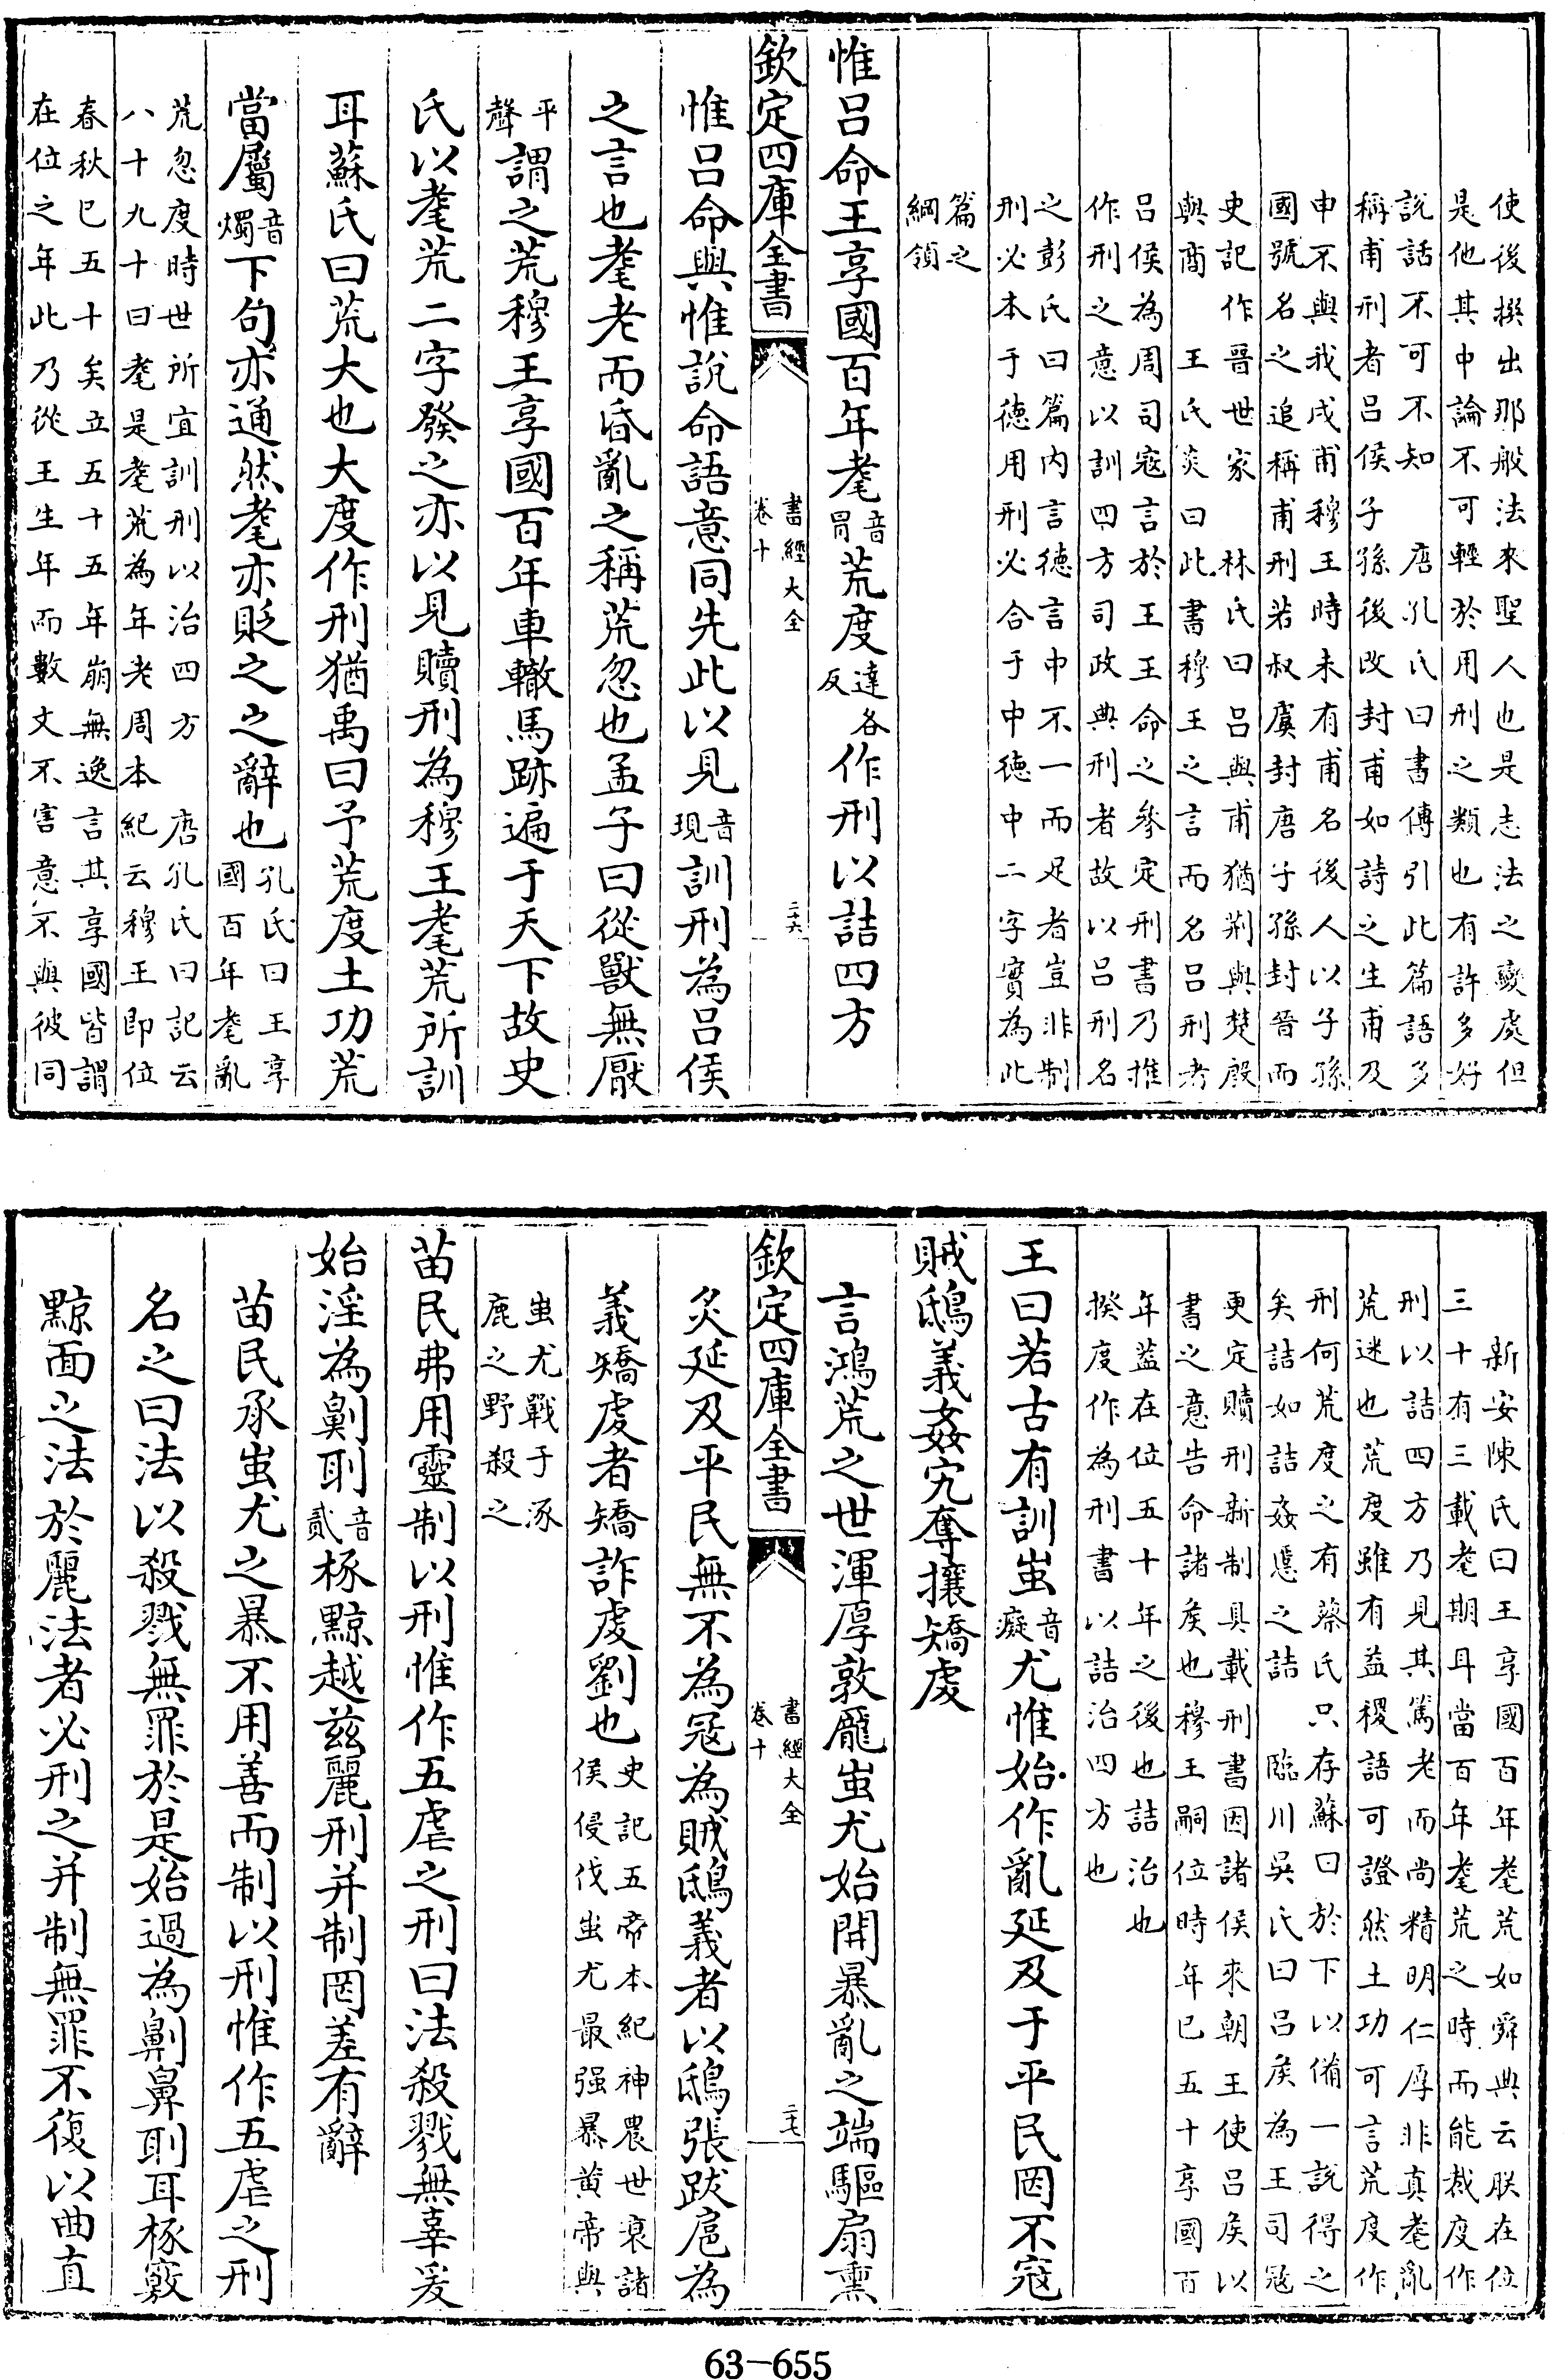 使後撰出那般法來聖人也是志法之變處但
是他其中論不可輕於用刑之類也有許多好
說話不可不知　唐孔氏曰書傳引此篇語多
稱甫刑者呂侯子孫後改封甫如詩之生甫及
申不與我戍甫穆王時未有甫名後人以子孫
國號名之追稱甫刑若叔虞封唐子孫封晉而
史記作晉世家　林氏曰呂與甫猶荆與楚殷
與商　王氏炎曰此書穆王之言而名呂刑者
呂侯為周司寇言於王王命之參定刑書乃推
作刑之意以訓四方司政典刑者故以呂刑名
之彭氏曰篇内言德言中不一而足者豈非制
刑必本于德用刑必合于中德中二字實為此
篇之
綱領
惟呂命王享國百年耄音胃荒度達各反作刑以詰四方
欽定四庫全書
書經大全
卷十
二十六
惟呂命與惟說命語意同先此以見音現訓刑為呂侯
之言也耄老而昏亂之稱荒忽也孟子曰從獸無厭
平聲謂之荒穆王享國百年車轍馬跡遍于天下故史
氏以耄荒二字發之亦以見贖刑為穆王耄荒所訓
耳蘇氏曰荒大也大度作刑猶禹曰予荒度土功荒
當屬音燭下句亦通然耄亦貶之之辭也孔氏曰王享國百年耄亂
荒忽度時世所宜訓刑以治四方　唐孔氏曰記云
八十九十曰耄是耄荒為年老周本紀云穆王即位
春秋已五十矣立五十五年崩無逸言其享國皆謂
在位之年此乃從王生年而數文不害意不與彼同
新安陳氏曰王享國百年耄荒如舜典云朕在位
三十有三載耄期耳當百年耄荒之時而能裁度作
刑以詰四方乃見其篤老而尚精明仁厚非真耄亂
荒迷也荒度雖有益稷語可證然土功可言荒度作
刑何荒度之有蔡氏只存蘇曰於下以備一說得之
矣詰如詰姦慝之詰　臨川吳氏曰呂侯為王司寇
更定贖刑新制具載刑書因諸侯來朝王使呂侯以
書之意告命諸侯也穆王嗣位時年已五十享國百
年葢在位五十年之後也詰治也
揆度作為刑書以詰治四方也
王曰若古有訓蚩音癡尤惟始作亂延及于平民罔不寇
賊鴟義姦宄奪攘矯虔
言鴻荒之世渾厚敦厖蚩尤始開暴亂之端驅扇熏
欽定四庫全書
書經大全
卷十
二十七
炙延及平民無不為寇為賊鴟義者以鴟張跋扈為
義矯虔者矯詐虔劉也史記五帝本紀神農世衰諸侯侵伐蚩尤最强暴黄帝與
蚩尤戰于涿
鹿之野殺之
苗民弗用靈制以刑惟作五虐之刑曰法殺戮無辜爰
始淫為劓刵音貳椓黥越兹麗刑并制罔差有辭
苗民承蚩尤之暴不用善而制以刑惟作五虐之刑
名之曰法以殺戮無罪於是始過為劓鼻刵耳椓竅
黥面之法於麗法者必刑之并制無罪不復以曲直
63-655